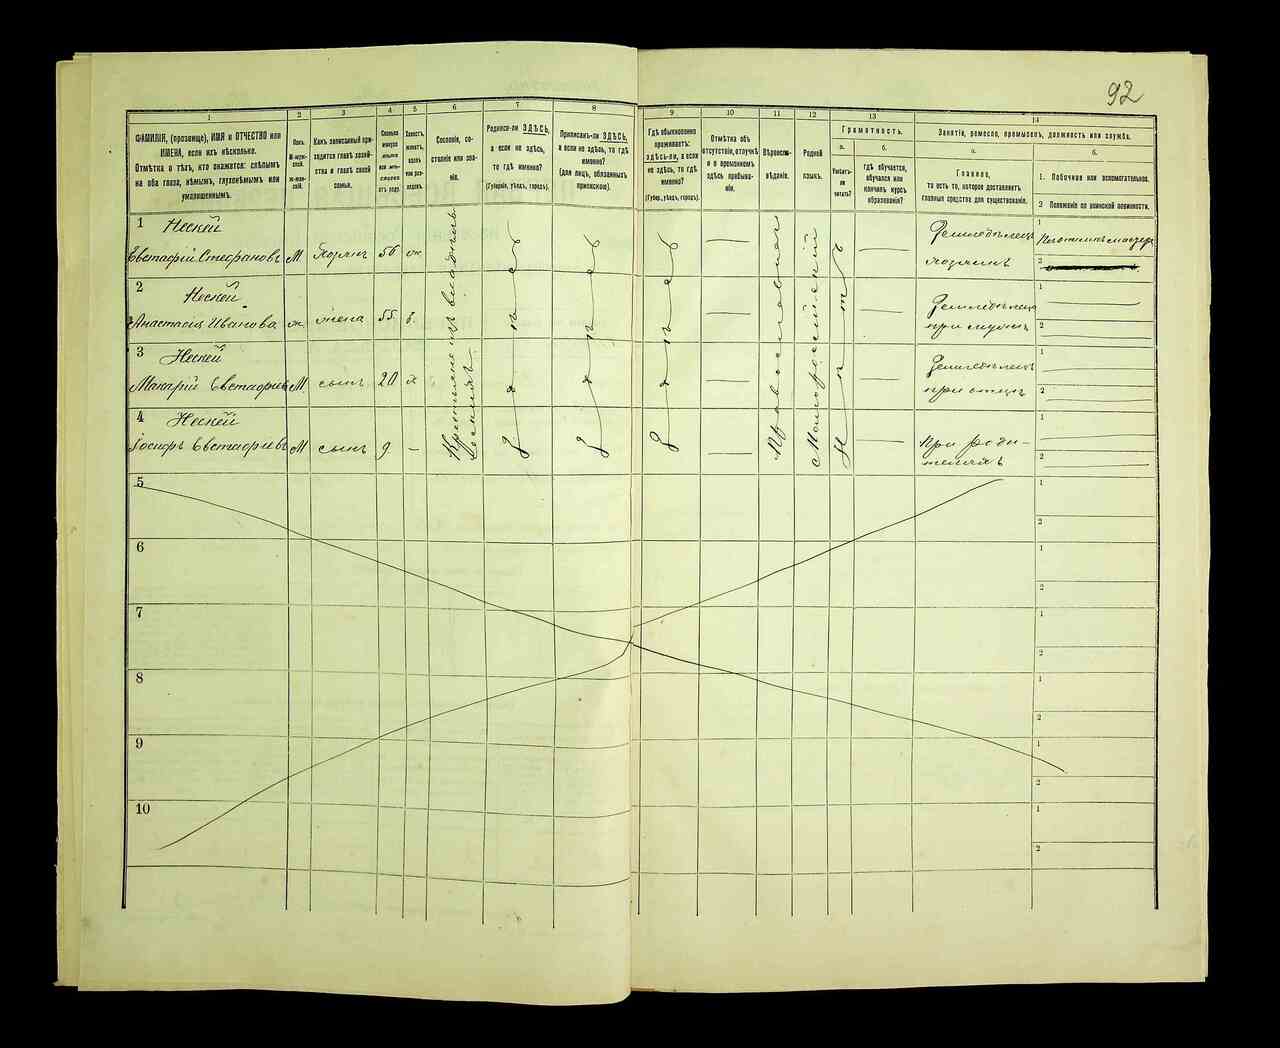 92
1
2
3
4
5
6
7
8
9
10
11
12
13
14
ФАМИЛІЯ, (прозвище), ИМЯ и ОТЧЕСТВО или
ИМЕНА, если ихъ нѣсколько.
Отмѣтка о тѣхъ, кто окажется: слѣпымъ
на оба глаза, нѣмымъ, глухонѣмымъ или
умалишеннымъ.
Полъ.
М-муж-
ской.
Ж-жен-
скій.
Какъ записанный при-
ходится главѣ хозяй-
ства и главѣ своей
семьи.
Сколько
минуло
лѣтъ
или мѣ-
сяцевъ
отъ роду.
Холостъ,
женатъ,
вдовъ
или раз-
веденъ.
Сословіе, со-
стояніе или зва-
ніе.
Родился-ли ЗДѢСЬ,
а если не здѣсь,
то гдѣ именно?
(Губернія, уѣздъ, городъ).
Приписанъ-ли ЗДѢСЬ,
а если не здѣсь, то гдѣ
именно?
(для лицъ, обязанныхъ
припискою).
Гдѣ обыкновенно
проживаетъ:
здѣсь-ли, а если
не здѣсь, то гдѣ
именно?
(Губер., уѣздъ, городъ).
Отмѣтка объ
отсутствіи, отлучкѣ
и о временномъ
здѣсь пребыва-
ніи.
Вѣроиспо-
вѣданіе.
Родной
языкъ.
Грамотность.
а.
Умѣетъ-
ли
читать?
б.
гдѣ обучается,
обучался или
кончилъ курсъ
образованія?
Занятіе, ремесло, промыселъ, должность или служба.
а.
Главное,
то есть то, которое доставляетъ
главныя средства для существованія.
б.
1. Побочное или вспомогательное.
2 Положеніе по воинской повинности.
1 Нескей
Евстафій Стефановъ М Хозяинъ 56 ж
Ремесленникъ
хозяинъ
1
2
2 Нескей
Анастасія Иванова ж. жена 55 з.
при мужѣ
1
2
3 Нескей
Макарій Евстафіевъ М. сынъ 20 х
при отцѣ
1
2
4 Нескей
Іосифъ Евстафіевъ М сынъ 9 —
При роди-
теляхъ
1
2
Крестьяне изъ владѣльч.
здѣсь
здѣсь
здѣсь
Православное
Малороссійскій
Нѣтъ
5
1
2
6
1
2
7
1
2
8
1
2
9
1
2
10
1
2